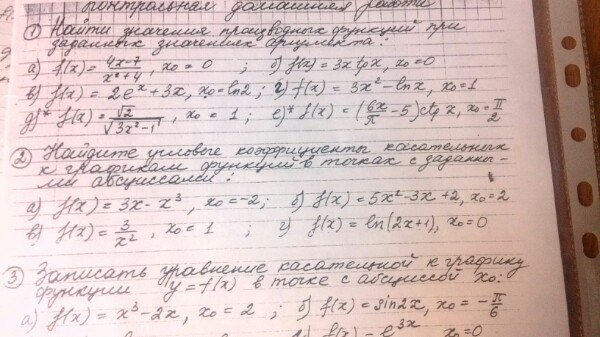 контрольная домашняя работа
① Найти значения производных функций при
заданных значениях аргумента:
а) f(x) = (4x-7)/(x²+4), x₀ = 0 ; б) f(x) = 3x tg x, x₀ = 0
в) f(x) = 2eˣ + 3x, x₀ = ln2; г) f(x) = 3x² - lnx, x₀ = 1
д)* f(x) = √2/√(3x²-1), x₀ = 1; е)* f(x) = (6x/π - 5) ctg x, x₀ = π/2
② Найдите угловые коэффициенты касательных
к графикам функций в точках с заданны-
ми абсциссами:
а) f(x) = 3x - x³, x₀ = -2; б) f(x) = 5x² - 3x + 2, x₀ = 2
в) f(x) = 3/x², x₀ = 1 ; г) f(x) = ln(2x+1), x₀ = 0
③ Записать уравнение касательной к графику
функции y = f(x) в точке с абсциссой x₀:
а) f(x) = x³ - 2x, x₀ = 2 ; б) f(x) = sin2x, x₀ = -π/6
f(x) = e³ˣ x₀ = 0